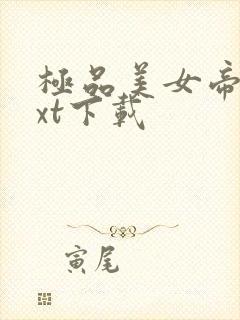 極品美女帝
xt下載
寅尾